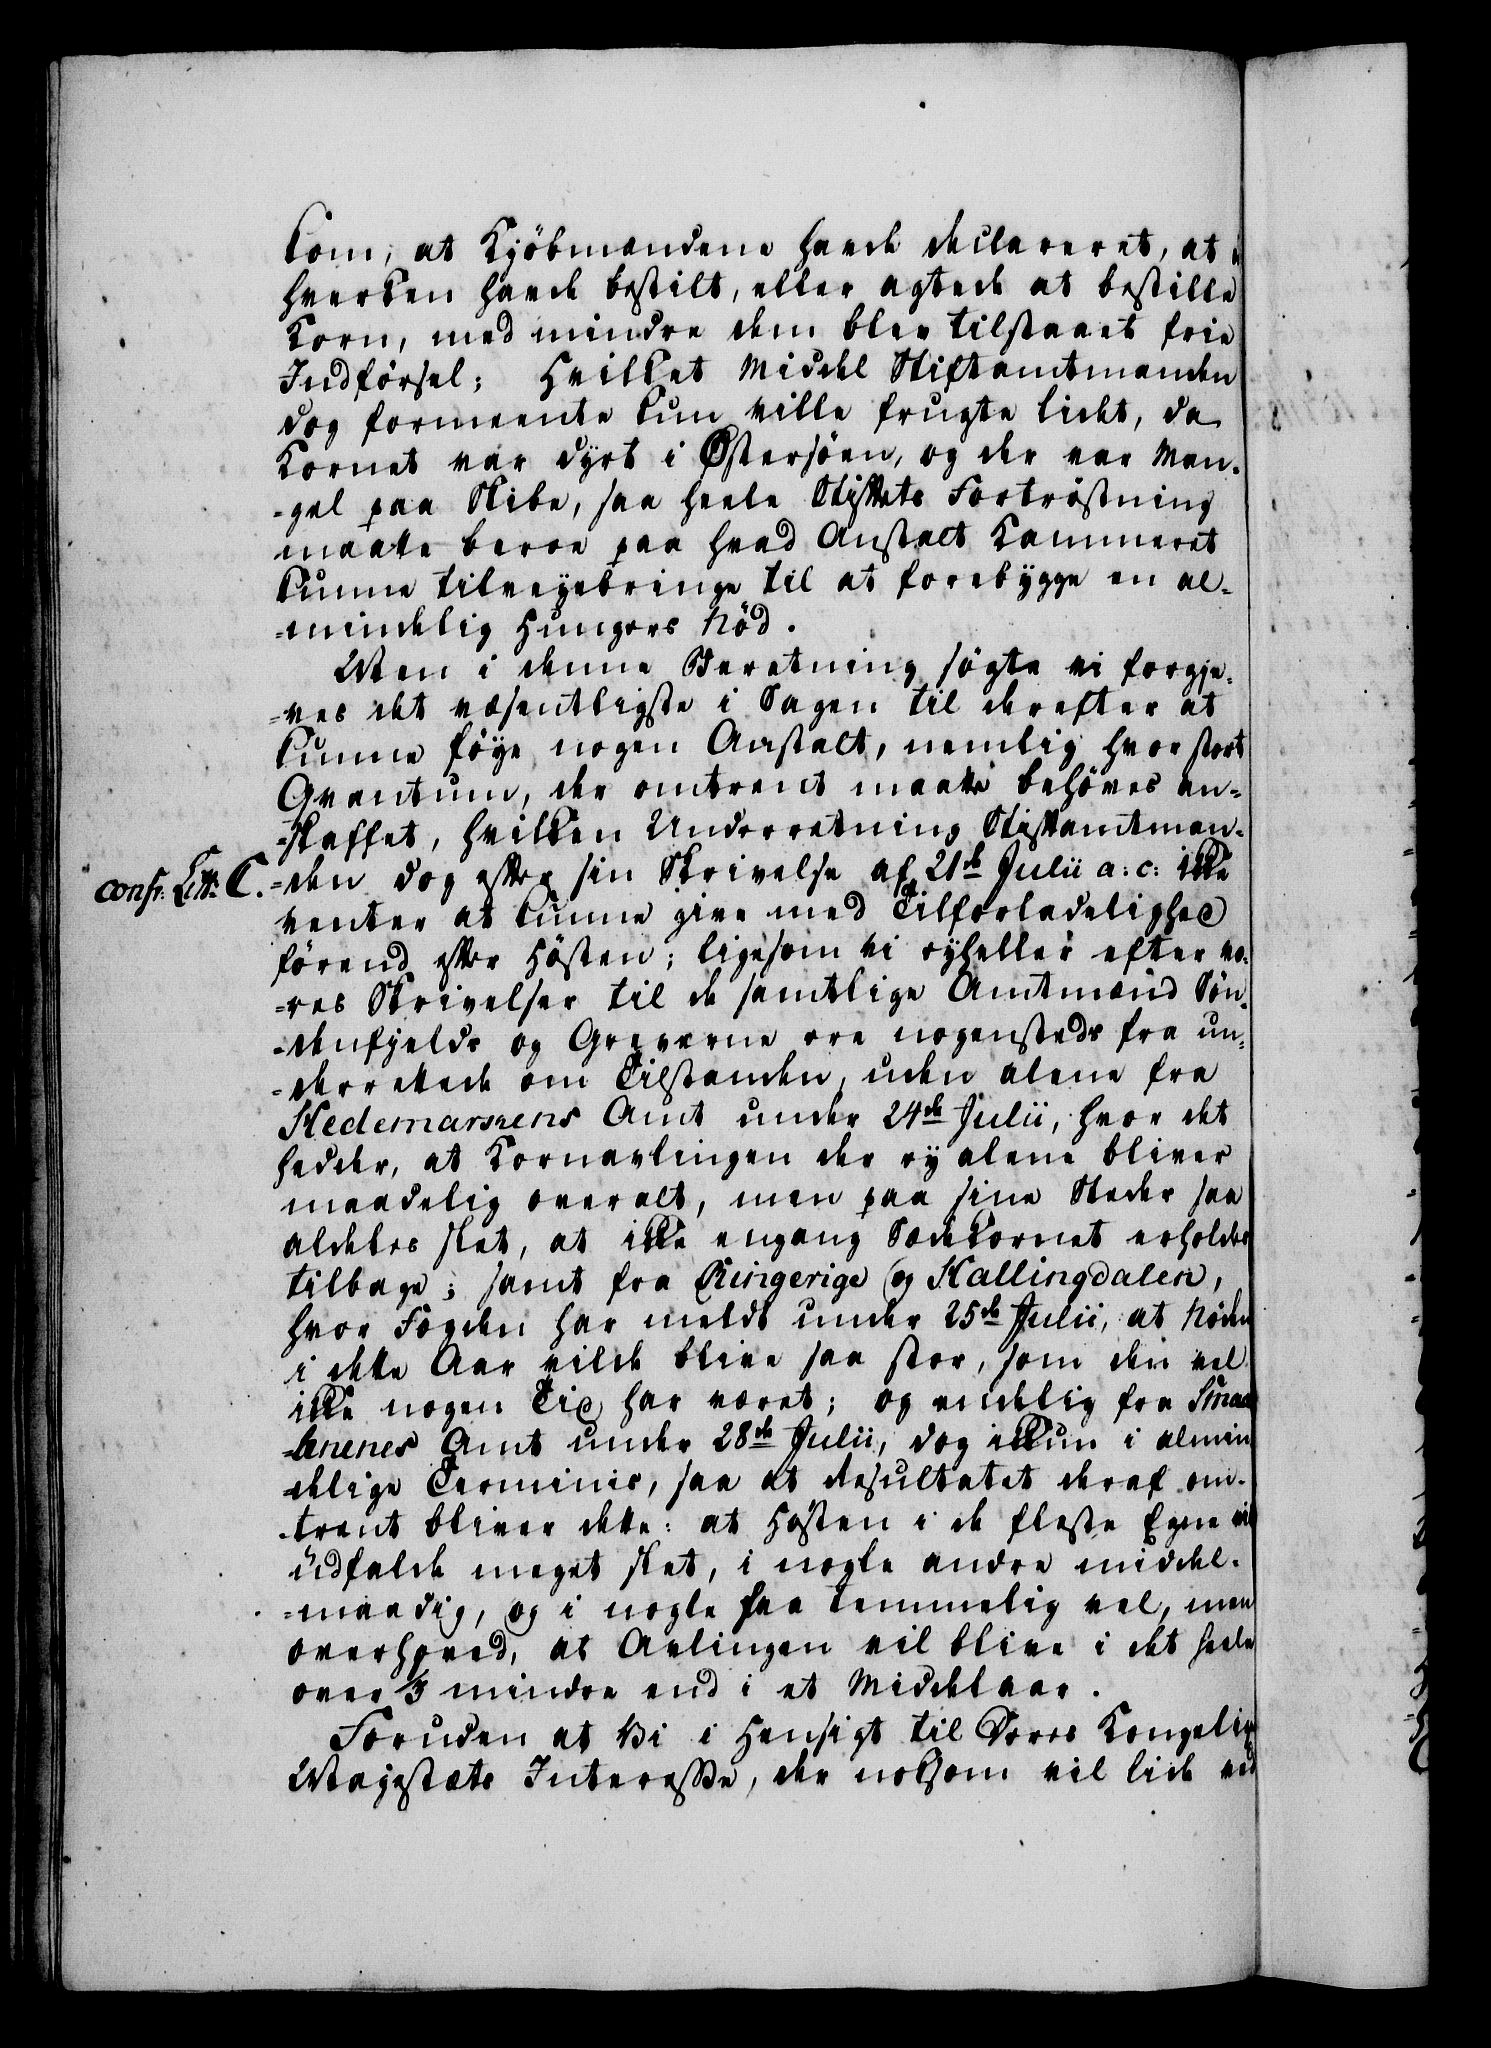 kom, at Kjöbmændene havde declareret, at
hverken havde bestilt, eller agtede at bestille
Korn, med mindre dem blev tilstaaet frie
Indførsel; Hvilket Middel Stiftamtmanden
dog formeente kun ville frugte lidt, da
Kornet var dyrt i Østersöen, og der var Man-
-gel paa Skibe, saa heele Stiftets Fortröstning
maatte beroe paa hvad Anstalt Kammeret
kunne tilvejebringe til at forebygge en al-
-mindelig Hungers Nöd.
Men i denne Beretning sögte vi forgje-
-ves det væsentligste i Sagen til derefter at
kunne föye nogen Anstalt, nemlig hvor stort
Qvantum, der omtrent maatte behöves an-
-skaffet, hvilken Underretning Stiftamtman-
confr: Litt: C. -den dog efter sin Skrivelse af 21de Julii a: c: ikke
venter at kunne give med Tilforladelighed
förend efter Hösten; ligesom vi eyheller efter vo-
-res Skrivelser til de samtlige Amtmænd Sön-
-denfjelds og Greverne ere nogensteds fra un-
-derrettede om Tilstanden, uden alene fra
Hedemarkens Amt under 24de Julii, hvor det
hedder, at Kornavlingen der ey alene bliver
maadelig overalt, men paa sine Steder saa
aldeles slet, at ikke engang Sædekornet erholdes
tilbage; samt fra Ringerige og Hallingdalen,
hvor Fogden har meldt under 25de Julii, at Nöden
i dette Aar vilde blive saa stor, som den vel
ikke nogen Tid har været; og endelig fra Smaa-
-lenenes Amt under 28de Julii, dog ikkun i almin-
-delige Terminis, saa at Resultatet deraf om-
-trent bliver dette: at Hösten i de fleste Egne vil
udfalde meget slet, i nogle andre middel-
-maadig, og i nogle faa temmelig vel, men
overhoved, at Avlingen vil blive i det heele
over 1/3 mindre end i et Middelaar.
Foruden at Vi i Hensigt til Deres Kongelig
Majestæts Interesse, der noksom vil lide ved